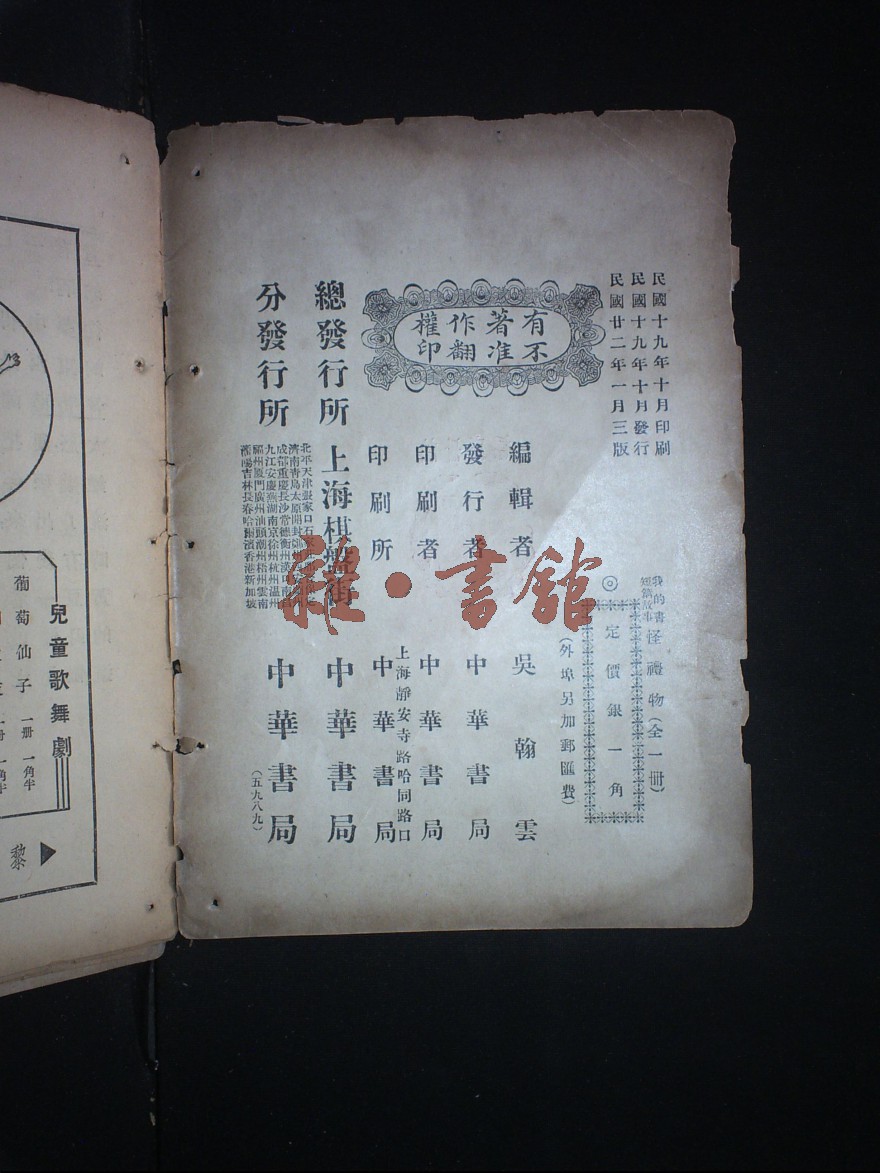 民國十九年十月印刷
民國十九年十月發行
民國廿二年一月三版
我的書
短篇故事
怪禮物(全一冊)
◎定價銀一角
(外埠另加郵匯費)
有著作權
不准翻印
編輯者 吳翰雲
發行者 中華書局
印刷者 中華書局
上海靜安寺路哈同路口
印刷所 中華書局
總發行所 上海棋盤街 中華書局
分發行所
北平天津張家口石
濟南青島太原開封
成都重慶長沙常德衡州漢
九江安慶蕪湖南京徐州杭州溫州
福州廈門廣州汕頭潮州梧州雲南
瀋陽吉林長春哈爾濱香港新加坡
中華書局
(五九八九)
雜·書館
兒童歌舞劇
葡萄仙子 一冊 一角半
黎